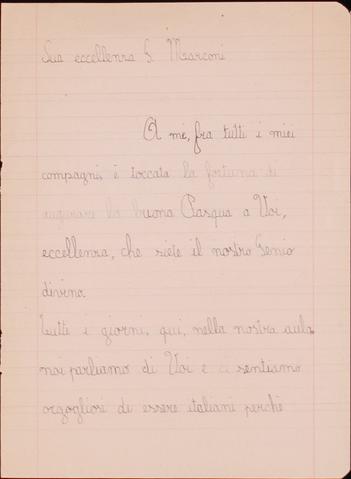 Sua eccellenza G. Marconi
A me, fra tutti i miei
compagni, è toccata la fortuna di
augurare la buona Pasqua a Voi,
eccellenza, che siete il nostro Genio
divino.
Tutti i giorni, qui, nella nostra aula
noi parliamo di Voi e ci sentiamo
orgogliosi di essere italiani perchè